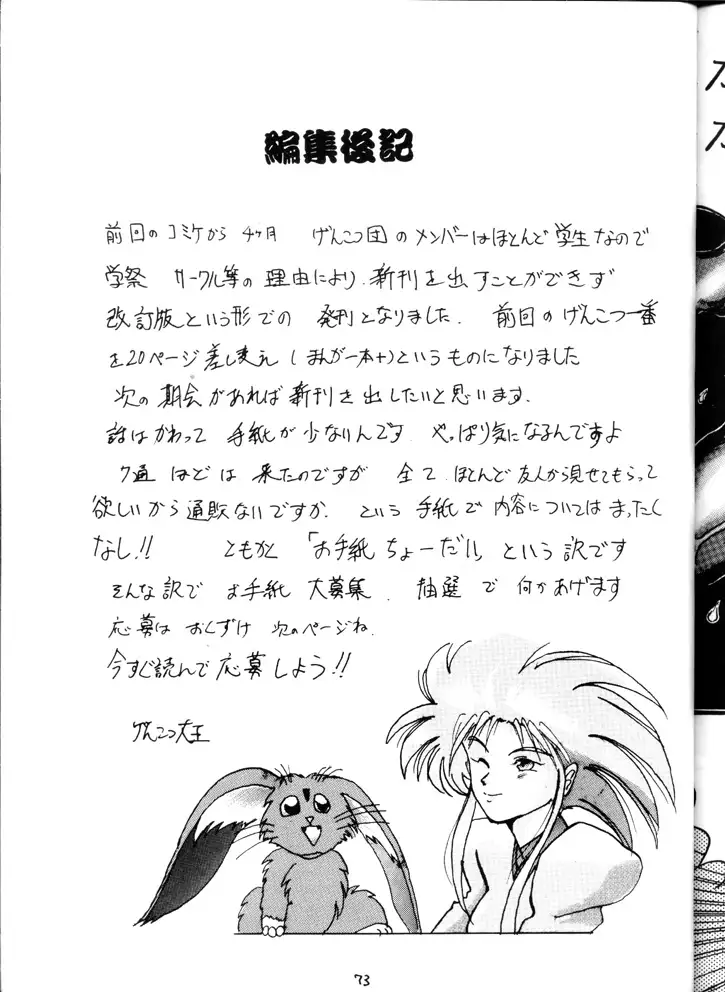 編集後記
前回のコミケから 4ヶ月 げんこつ団のメンバーはほとんど学生なので
学祭 サークル等の理由により、新刊を出すことができず
改訂版という形での 発刊となりました. 前回のげんこつ一番
を20ページ差し変え(まんが一本+)というものになりました
次の期会があれば新刊を出したいと思います.
話はかわって 手紙が少ないんです やっぱり気になるんですよ
7通 ほどは 来たのですが 全て、ほとんど友人から見せてもらって
欲しいから通販ないですか. という 手紙で内容についてはまったく
なし!! ともかく 「お手紙 ちょーだい」という訳です
そんな訳で お手紙 大募集. 抽選 で 何かあげます
応募は おくずけ 次のページね.
今すぐ読んで 応募しよう!!
げんこつ大王
73